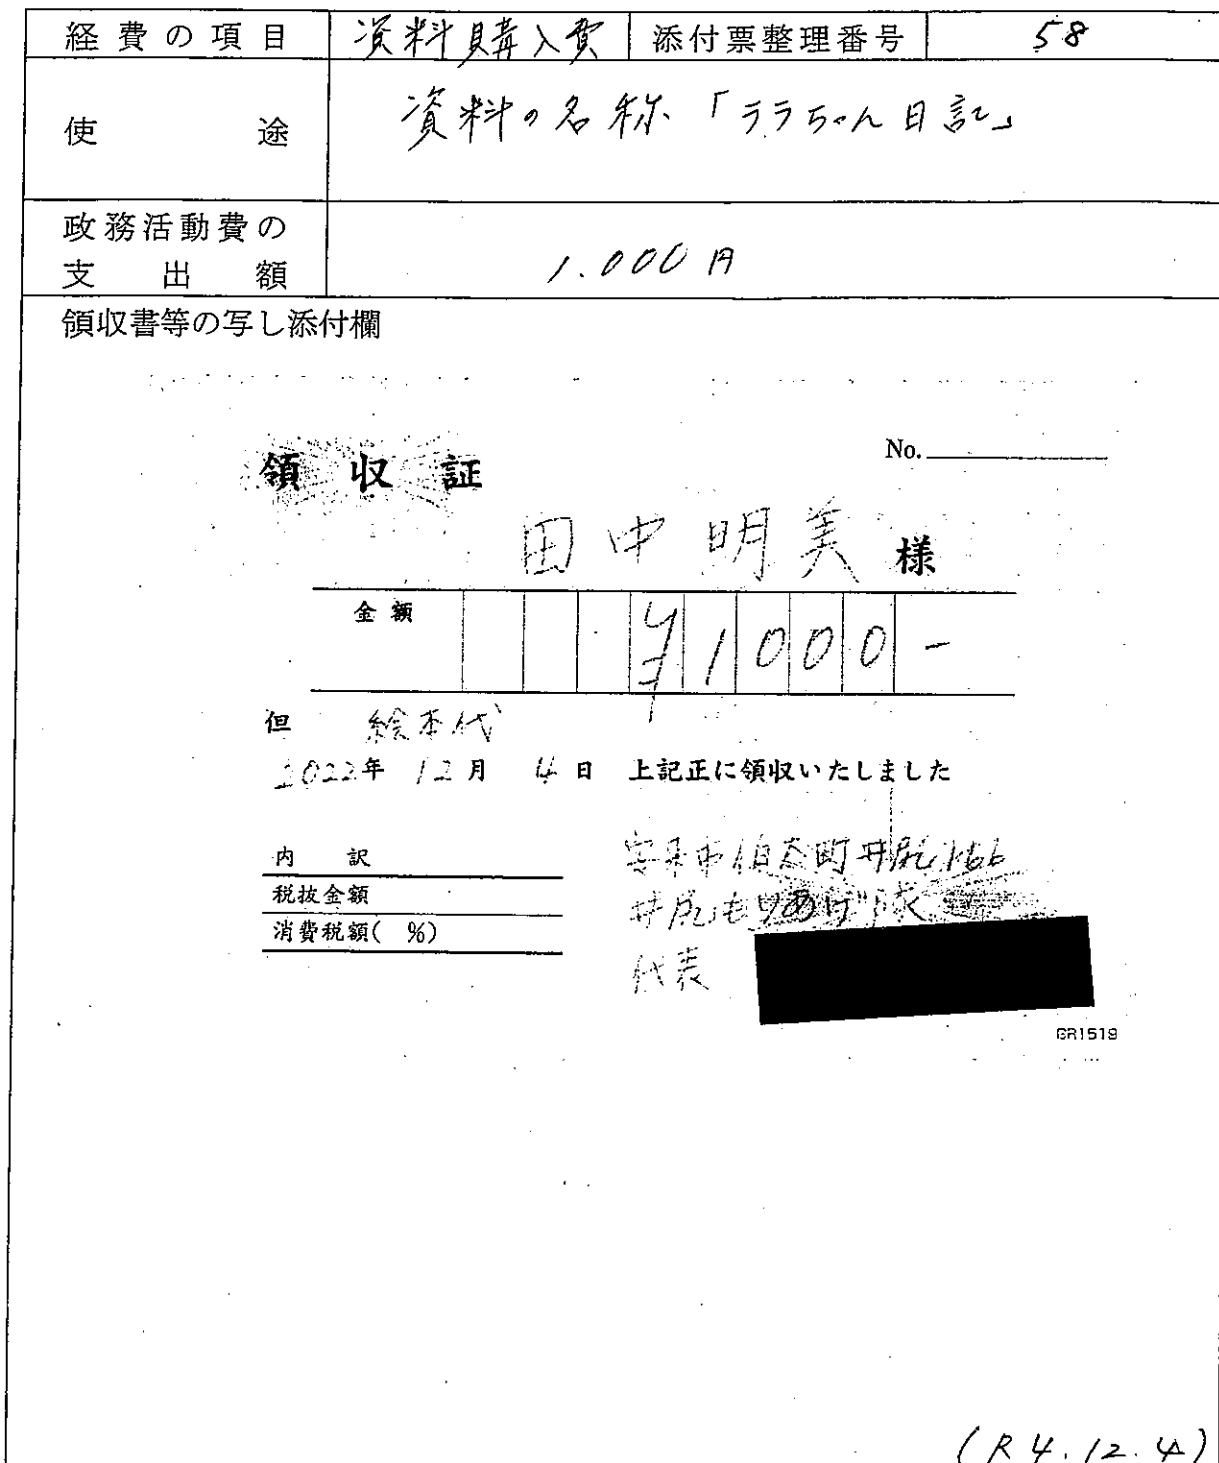 経費の項目 資料購入費 添付票整理番号 58
使途 資料の名称「ララちゃん日記」
政務活動費の
支出額 1.000円
領収書等の写し添付欄
領収証 No.
田中明美 様
金額 ¥1000-
但 絵本代
2022年 12月 4日 上記正に領収いたしました
内訳 安来市伯太町井尻166
税抜金額 井尻もりあげ隊
消費税額( %)
代表
GR1519
(R4.12.4)